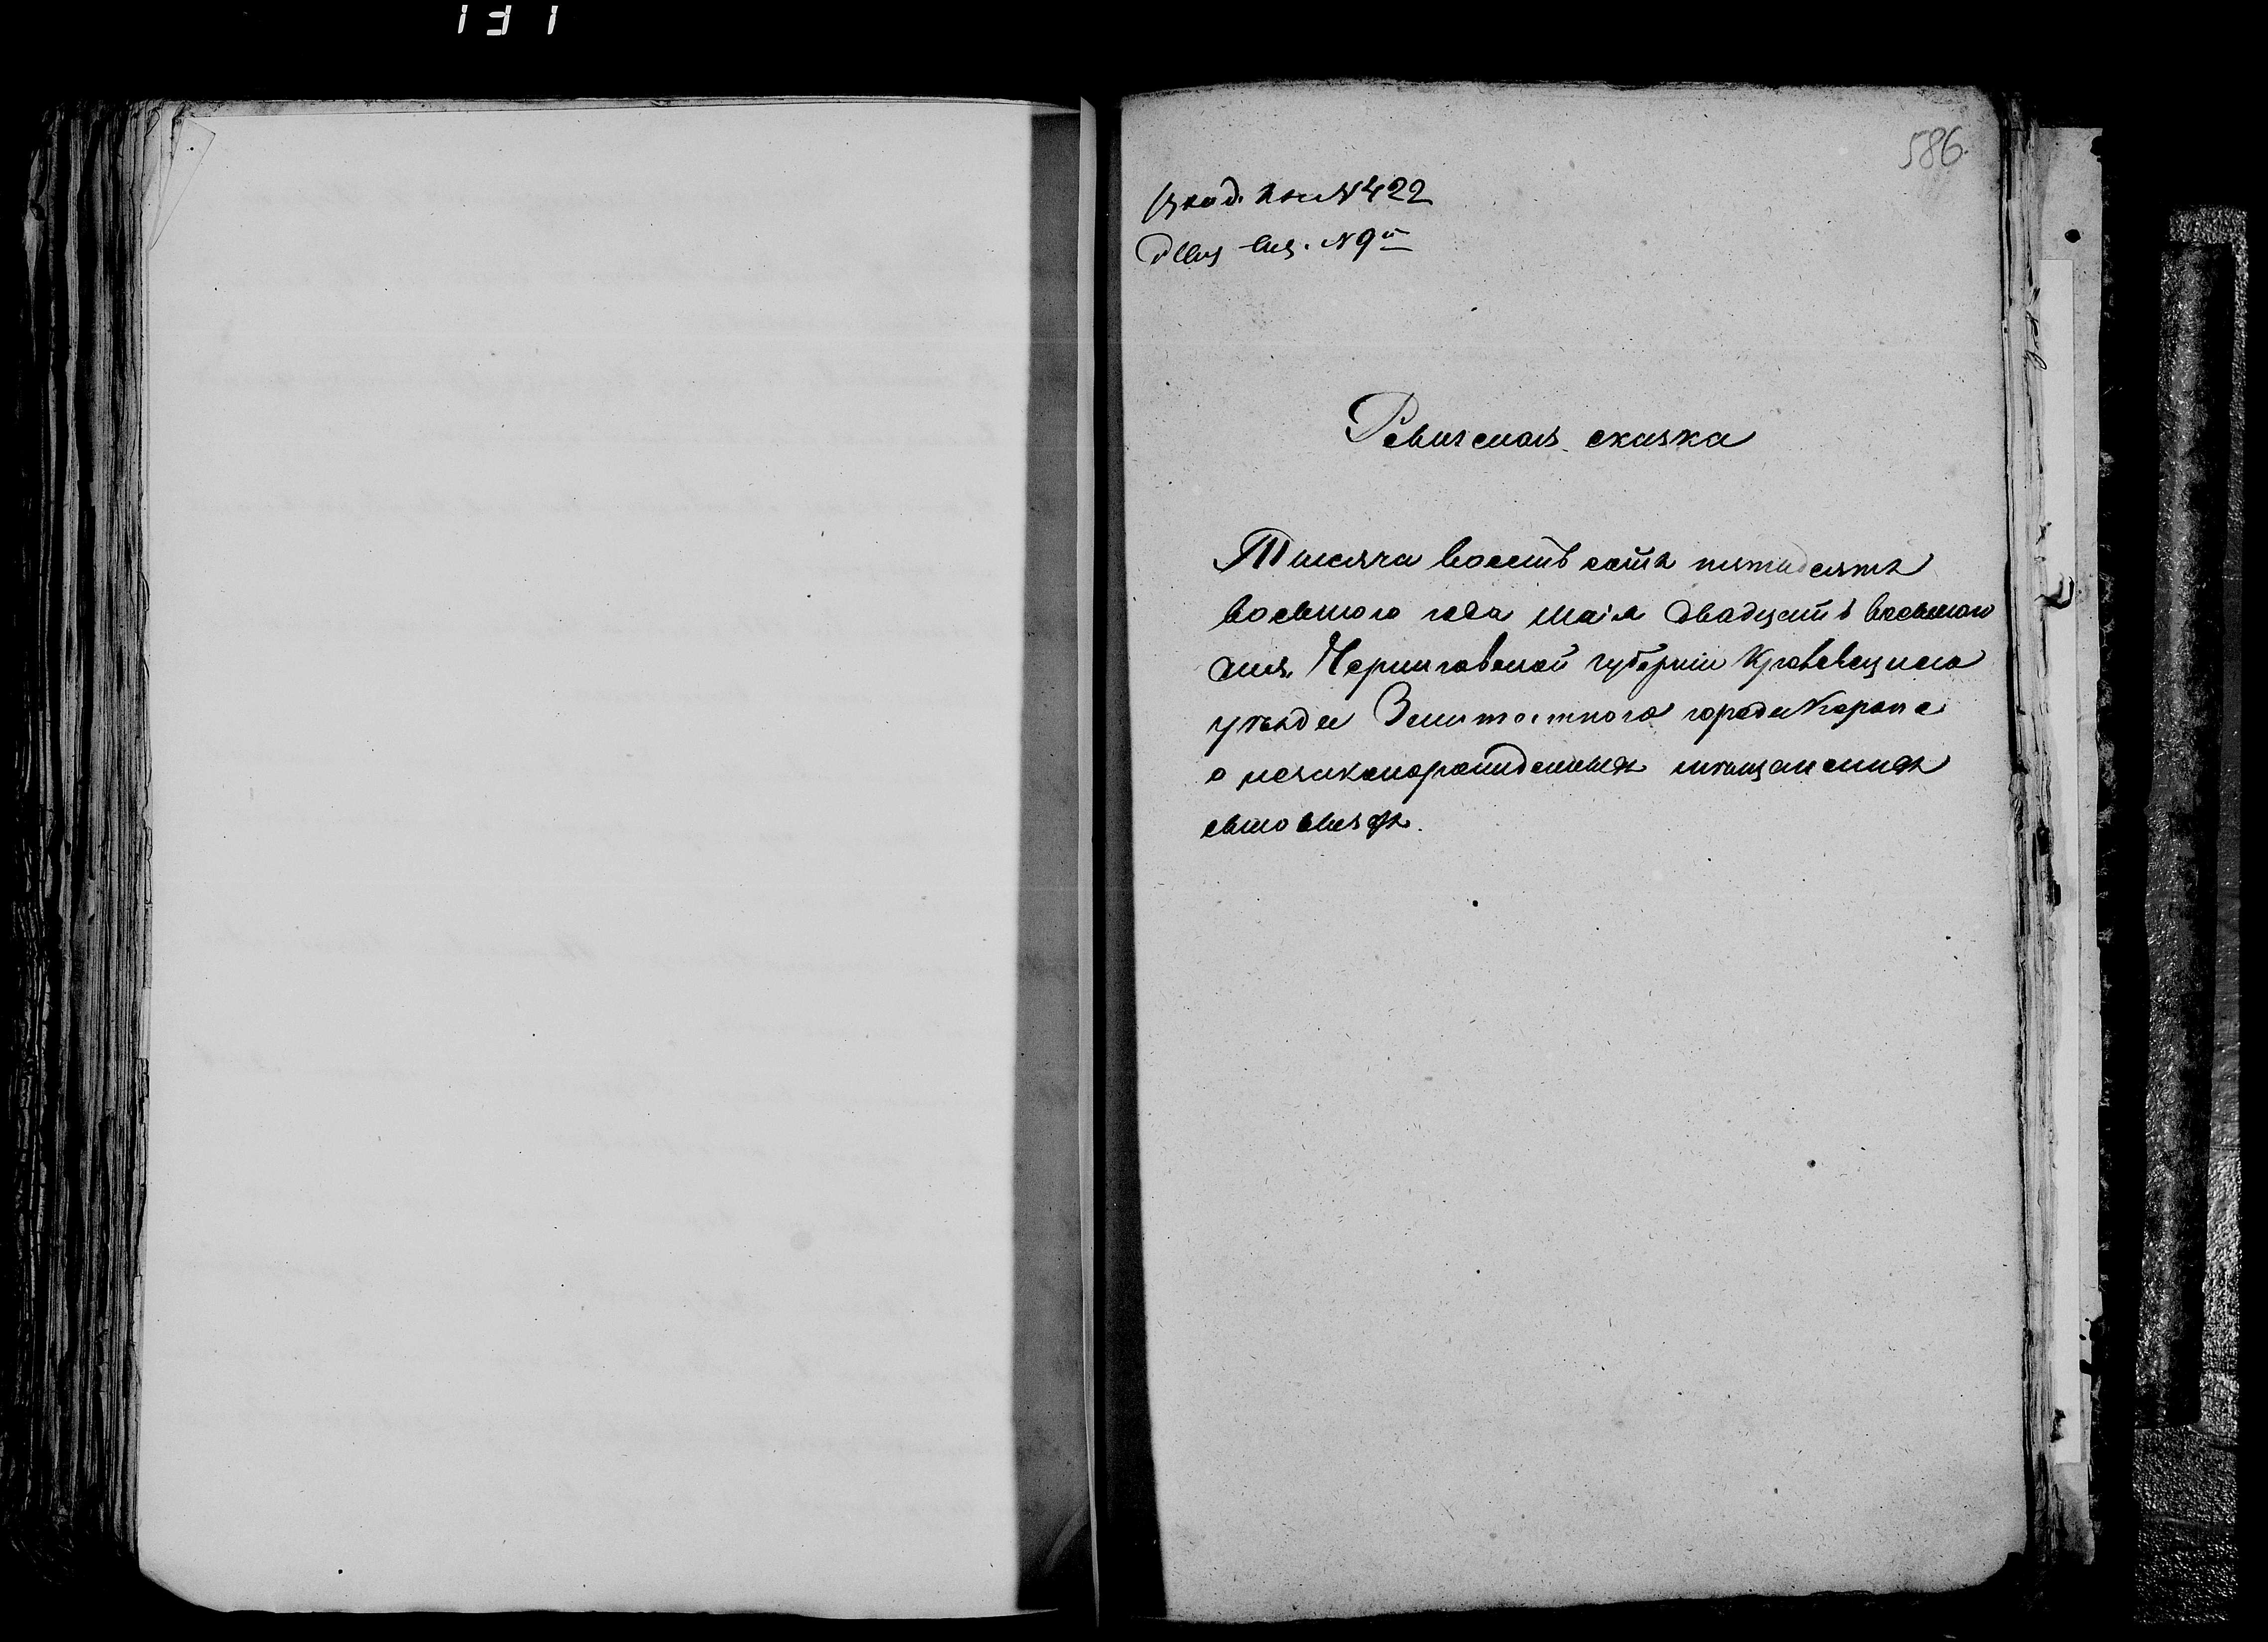 131
586.
вход. кн. №422
Ревизская сказка
Тысяча восемь сотъ пятидесятъ
восьмого года маія двадцять восьмого
дня, Черниговской губерніи Кролевецкого
уѣзда Заштатного города Коропа
о мѣщанскихъ